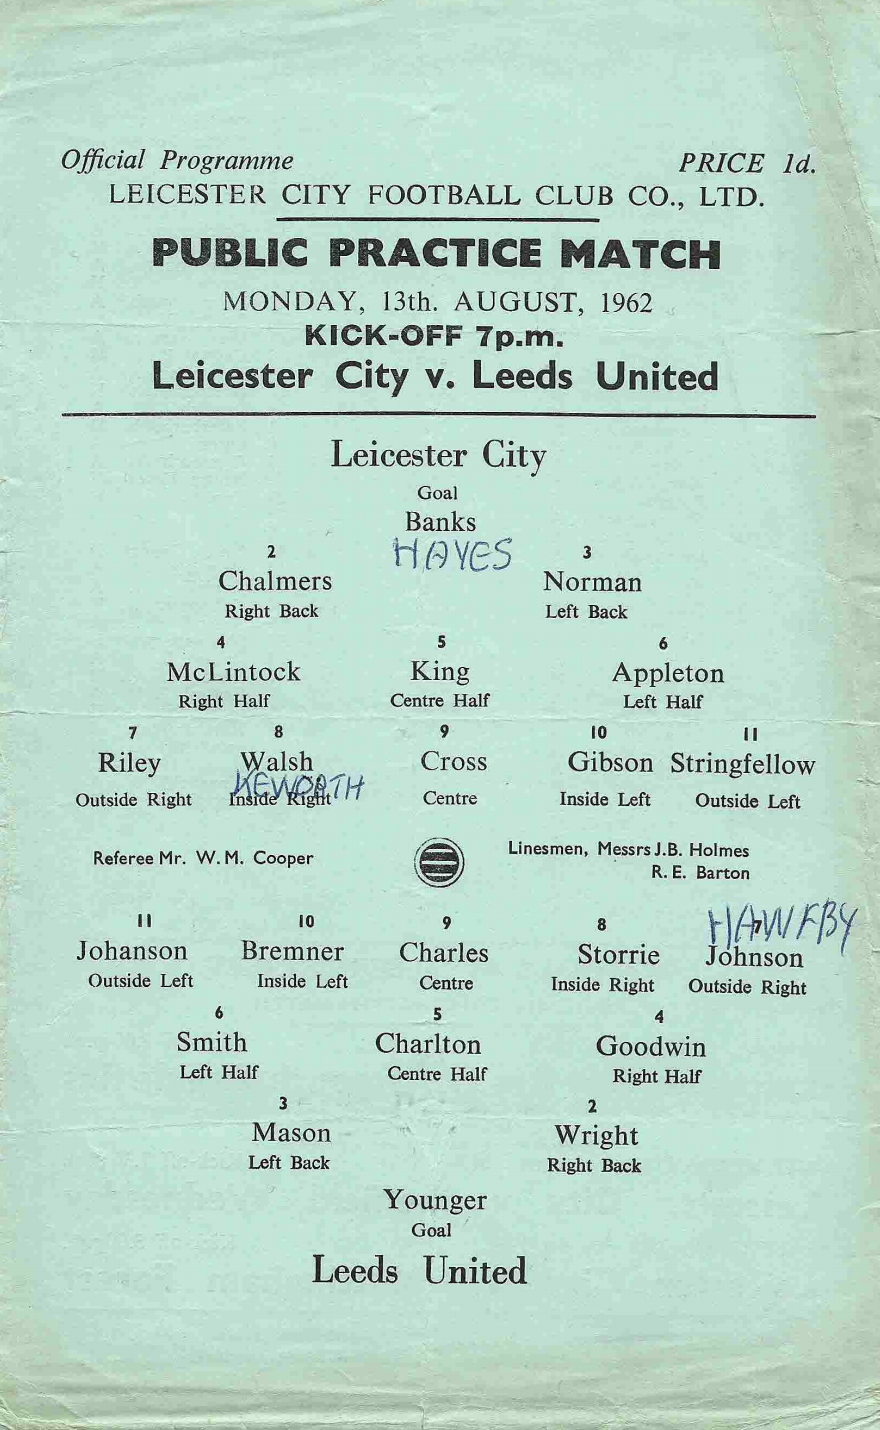 Official Programme PRICE 1d.
LEICESTER CITY FOOTBALL CLUB CO., LTD.
PUBLIC PRACTICE MATCH
MONDAY, 13th. AUGUST, 1962
KICK-OFF 7p.m.
Leicester City v. Leeds United
Leicester City
Goal
Banks
HAYES
2 3
Chalmers Norman
Right Back Left Back
4 5 6
McLintock King Appleton
Right Half Centre Half Left Half
7 8 9 10 11
Riley Walsh Cross Gibson Stringfellow
KEWORTH
Outside Right Inside Right Centre Inside Left Outside Left
Referee Mr. W. M. Cooper Linesmen, Messrs J.B. Holmes
R. E. Barton
HAWKBY
11 10 9 8 7
Johanson Bremner Charles Storrie Johnson
Outside Left Inside Left Centre Inside Right Outside Right
6 5 4
Smith Charlton Goodwin
Left Half Centre Half Right Half
3 2
Mason Wright
Left Back Right Back
Younger
Goal
Leeds United